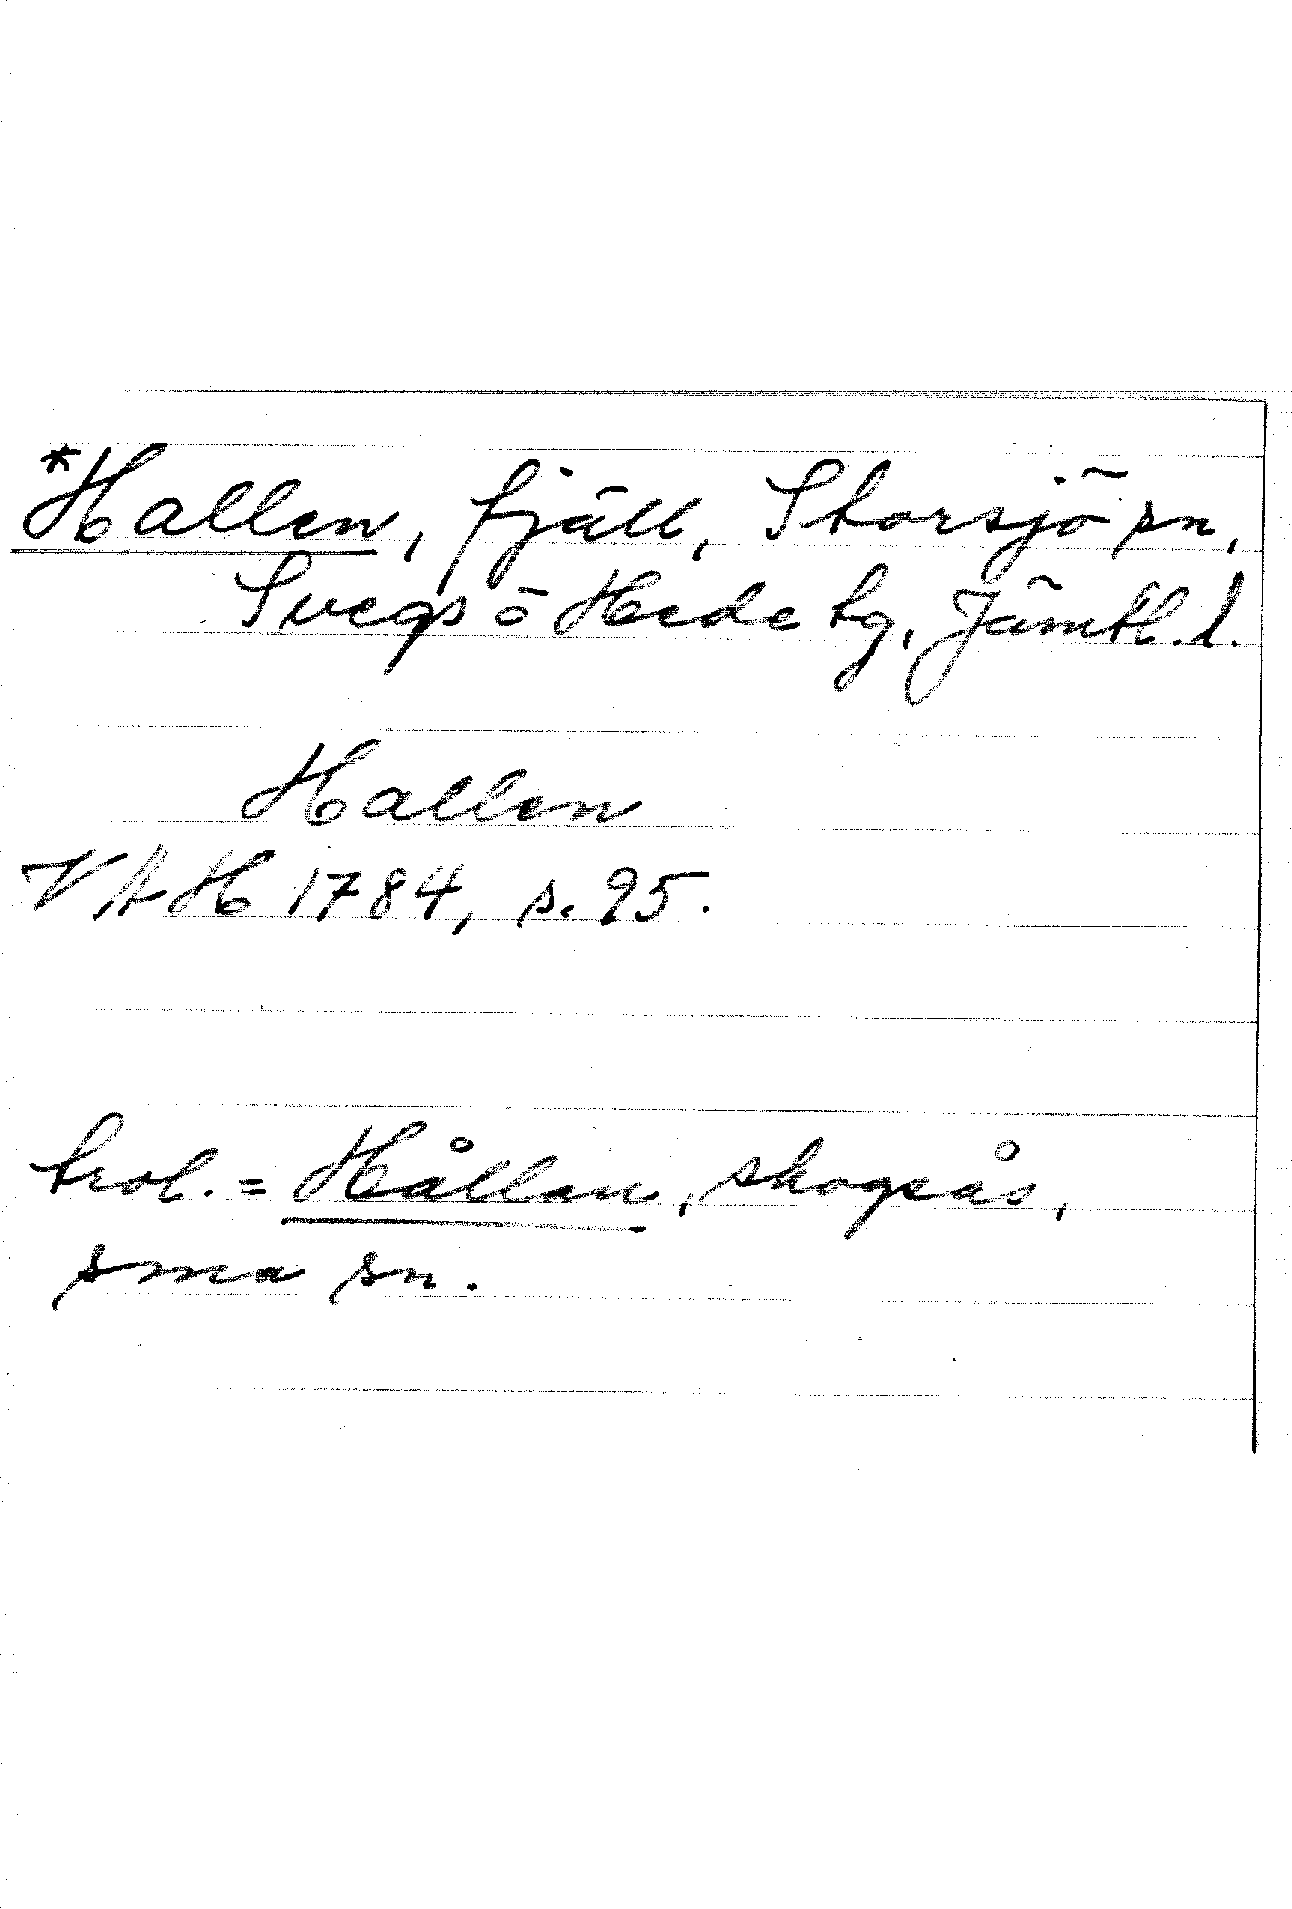 *Hallen, fjäll, Storsjö sn,
Svegs o Hede tg, Jämtl. l.
Hallen
VAH 1784, s. 95.
trol. = Hållan, skogsås,
sma sn.